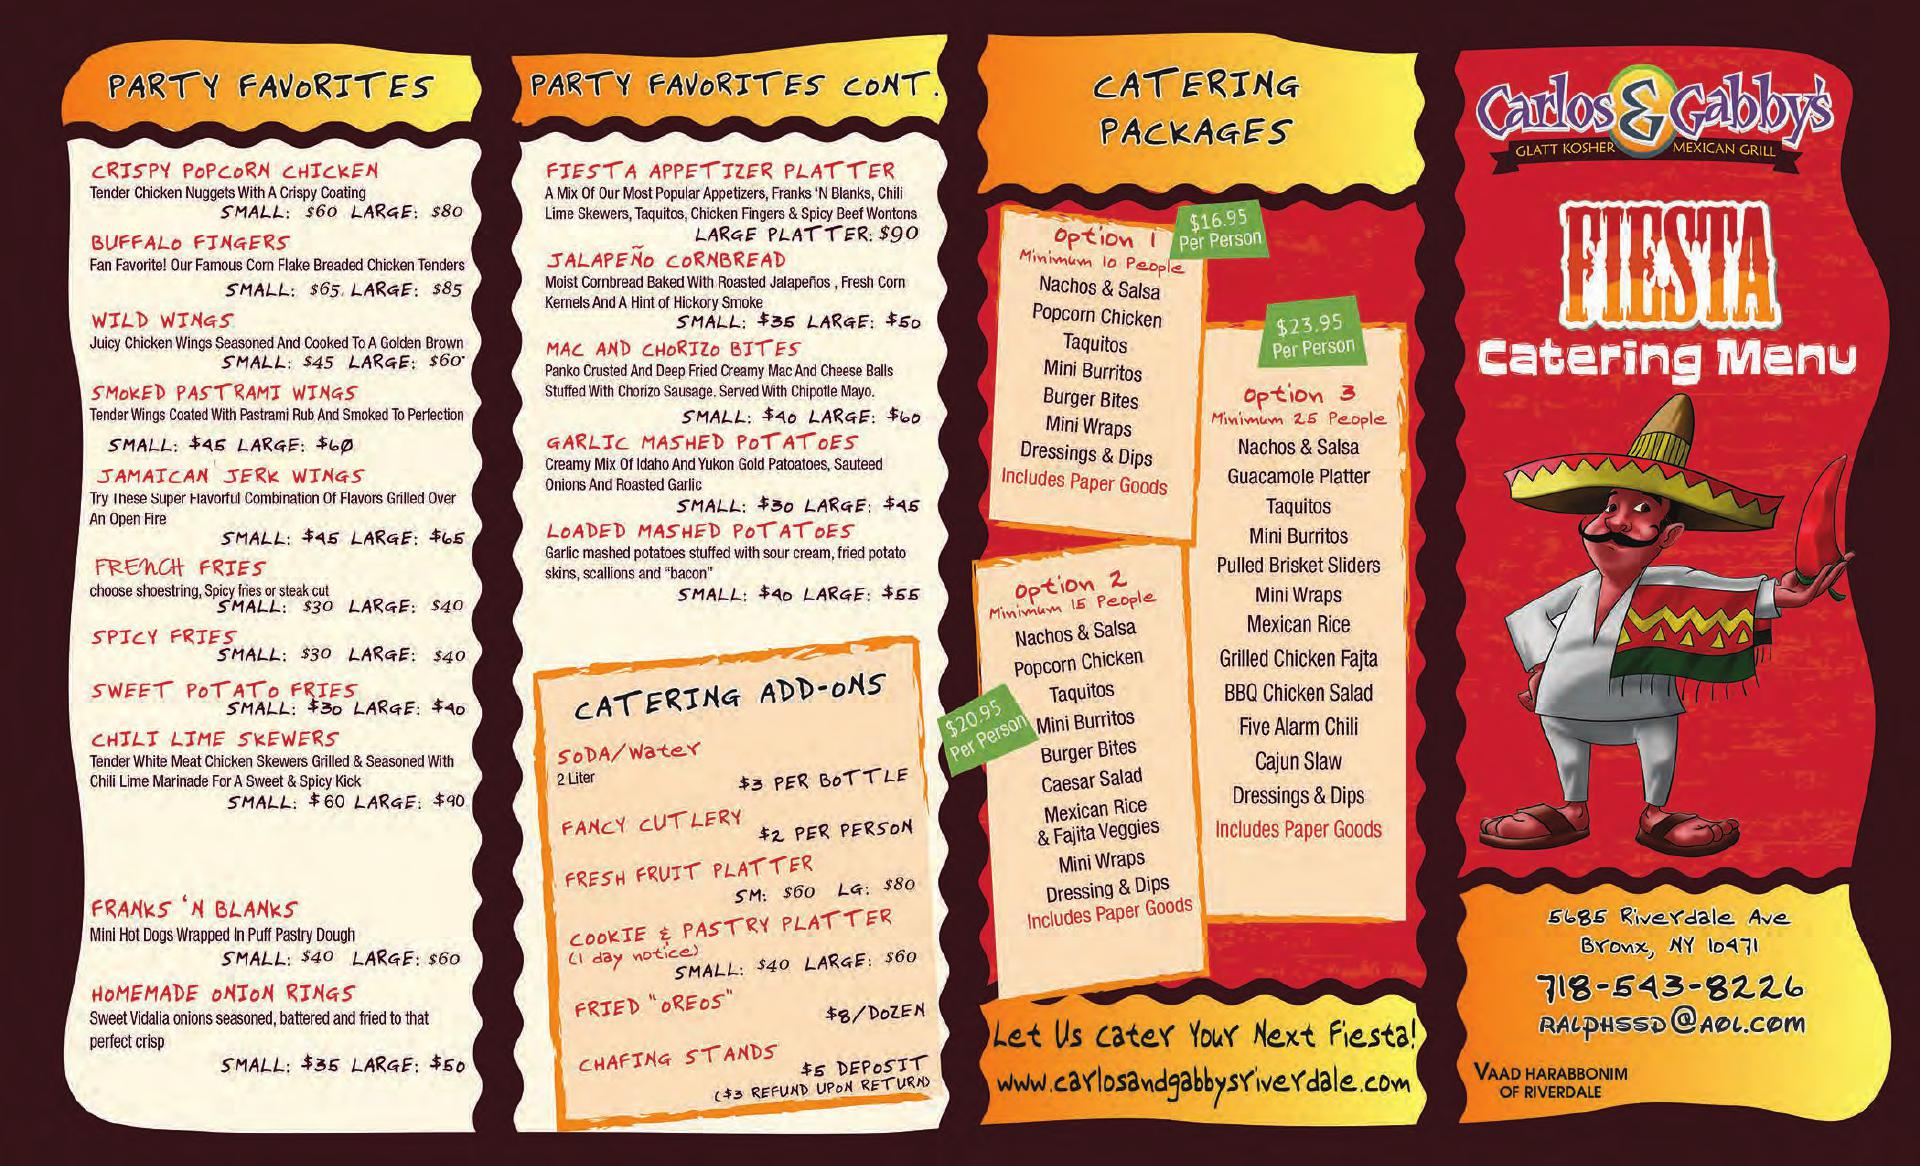 PARTY FAVORITES
CRISPY POPCORN CHICKEN
Tender Chicken Nuggets With A Crispy Coating
SMALL: $60 LARGE: $80
BUFFALO FINGERS
Fan Favorite! Our Famous Corn Flake Breaded Chicken Tenders
SMALL: $65. LARGE: $85
WILD WINGS
Juicy Chicken Wings Seasoned And Cooked To A Golden Brown
SMALL: $45 LARGE: $60
SMOKED PASTRAMI WINGS
Tender Wings Coated With Pastrami Rub And Smoked To Perfection
SMALL: $45 LARGE: $60
JAMAICAN JERK WINGS
Try These Super Flavorful Combination Of Flavors Grilled Over
An Open Fire
SMALL: $45 LARGE: $65
FRENCH FRIES
choose shoestring, Spicy fries or steak cut
SMALL: $30 LARGE: $40
SPICY FRIES
SMALL: $30 LARGE: $40
SWEET POTATO FRIES
SMALL: $30 LARGE: $40
CHILI LIME SKEWERS
Tender White Meat Chicken Skewers Grilled & Seasoned With
Chili Lime Marinade For A Sweet & Spicy Kick
SMALL: $60 LARGE: $90
FRANKS 'N BLANKS
Mini Hot Dogs Wrapped In Puff Pastry Dough
SMALL: $40 LARGE: $60
HOMEMADE ONION RINGS
Sweet Vidalia onions seasoned, battered and fried to that
perfect crisp
SMALL: $35 LARGE: $50
PARTY FAVORITES CONT.
FIESTA APPETIZER PLATTER
A Mix Of Our Most Popular Appetizers, Franks 'N Blanks, Chili
Lime Skewers, Taquitos, Chicken Fingers & Spicy Beef Wontons
LARGE PLATTER: $90
JALAPEÑO CORNBREAD
Moist Cornbread Baked With Roasted Jalapeños , Fresh Corn
Kernels And A Hint of Hickory Smoke
SMALL: $35 LARGE: $50
MAC AND CHORIZO BITES
Panko Crusted And Deep Fried Creamy Mac And Cheese Balls
Stuffed With Chorizo Sausage. Served With Chipotle Mayo.
SMALL: $40 LARGE: $60
GARLIC MASHED POTATOES
Creamy Mix Of Idaho And Yukon Gold Patoatoes, Sauteed
Onions And Roasted Garlic
SMALL: $30 LARGE: $45
LOADED MASHED POTATOES
Garlic mashed potatoes stuffed with sour cream, fried potato
skins, scallions and "bacon"
SMALL: $40 LARGE: $55
CATERING ADD-ONS
SODA/Water
2 Liter
$3 PER BOTTLE
FANCY CUTLERY
$2 PER PERSON
FRESH FRUIT PLATTER
SM: $60 LG: $80
COOKIE & PASTRY PLATTER
(1 day notice)
SMALL: $40 LARGE: $60
FRIED "OREOS"
$8/DOZEN
CHAFING STANDS
$5 DEPOSIT
($3 REFUND UPON RETURN)
CATERING
PACKAGES
$16.95
Per Person
Option 1
Minimum 10 People
Nachos & Salsa
Popcorn Chicken
Taquitos
Mini Burritos
Burger Bites
Mini Wraps
Dressings & Dips
Includes Paper Goods
$20.95
Per Person
Option 2
Minimum 15 People
Nachos & Salsa
Popcorn Chicken
Taquitos
Mini Burritos
Burger Bites
Caesar Salad
Mexican Rice
& Fajita Veggies
Mini Wraps
Dressing & Dips
Includes Paper Goods
$23.95
Per Person
Option 3
Minimum 25 People
Nachos & Salsa
Guacamole Platter
Taquitos
Mini Burritos
Pulled Brisket Sliders
Mini Wraps
Mexican Rice
Grilled Chicken Fajta
BBQ Chicken Salad
Five Alarm Chili
Cajun Slaw
Dressings & Dips
Includes Paper Goods
Let Us Cater Your Next Fiesta!
www.carlosandgabbysriverdale.com
Carlos & Gabby's
GLATT KOSHER MEXICAN GRILL
FIESTA
Catering Menu
5685 Riverdale Ave
Bronx, NY 10471
718-543-8226
RALPHSSD@AOL.COM
VAAD HARABBONIM
OF RIVERDALE